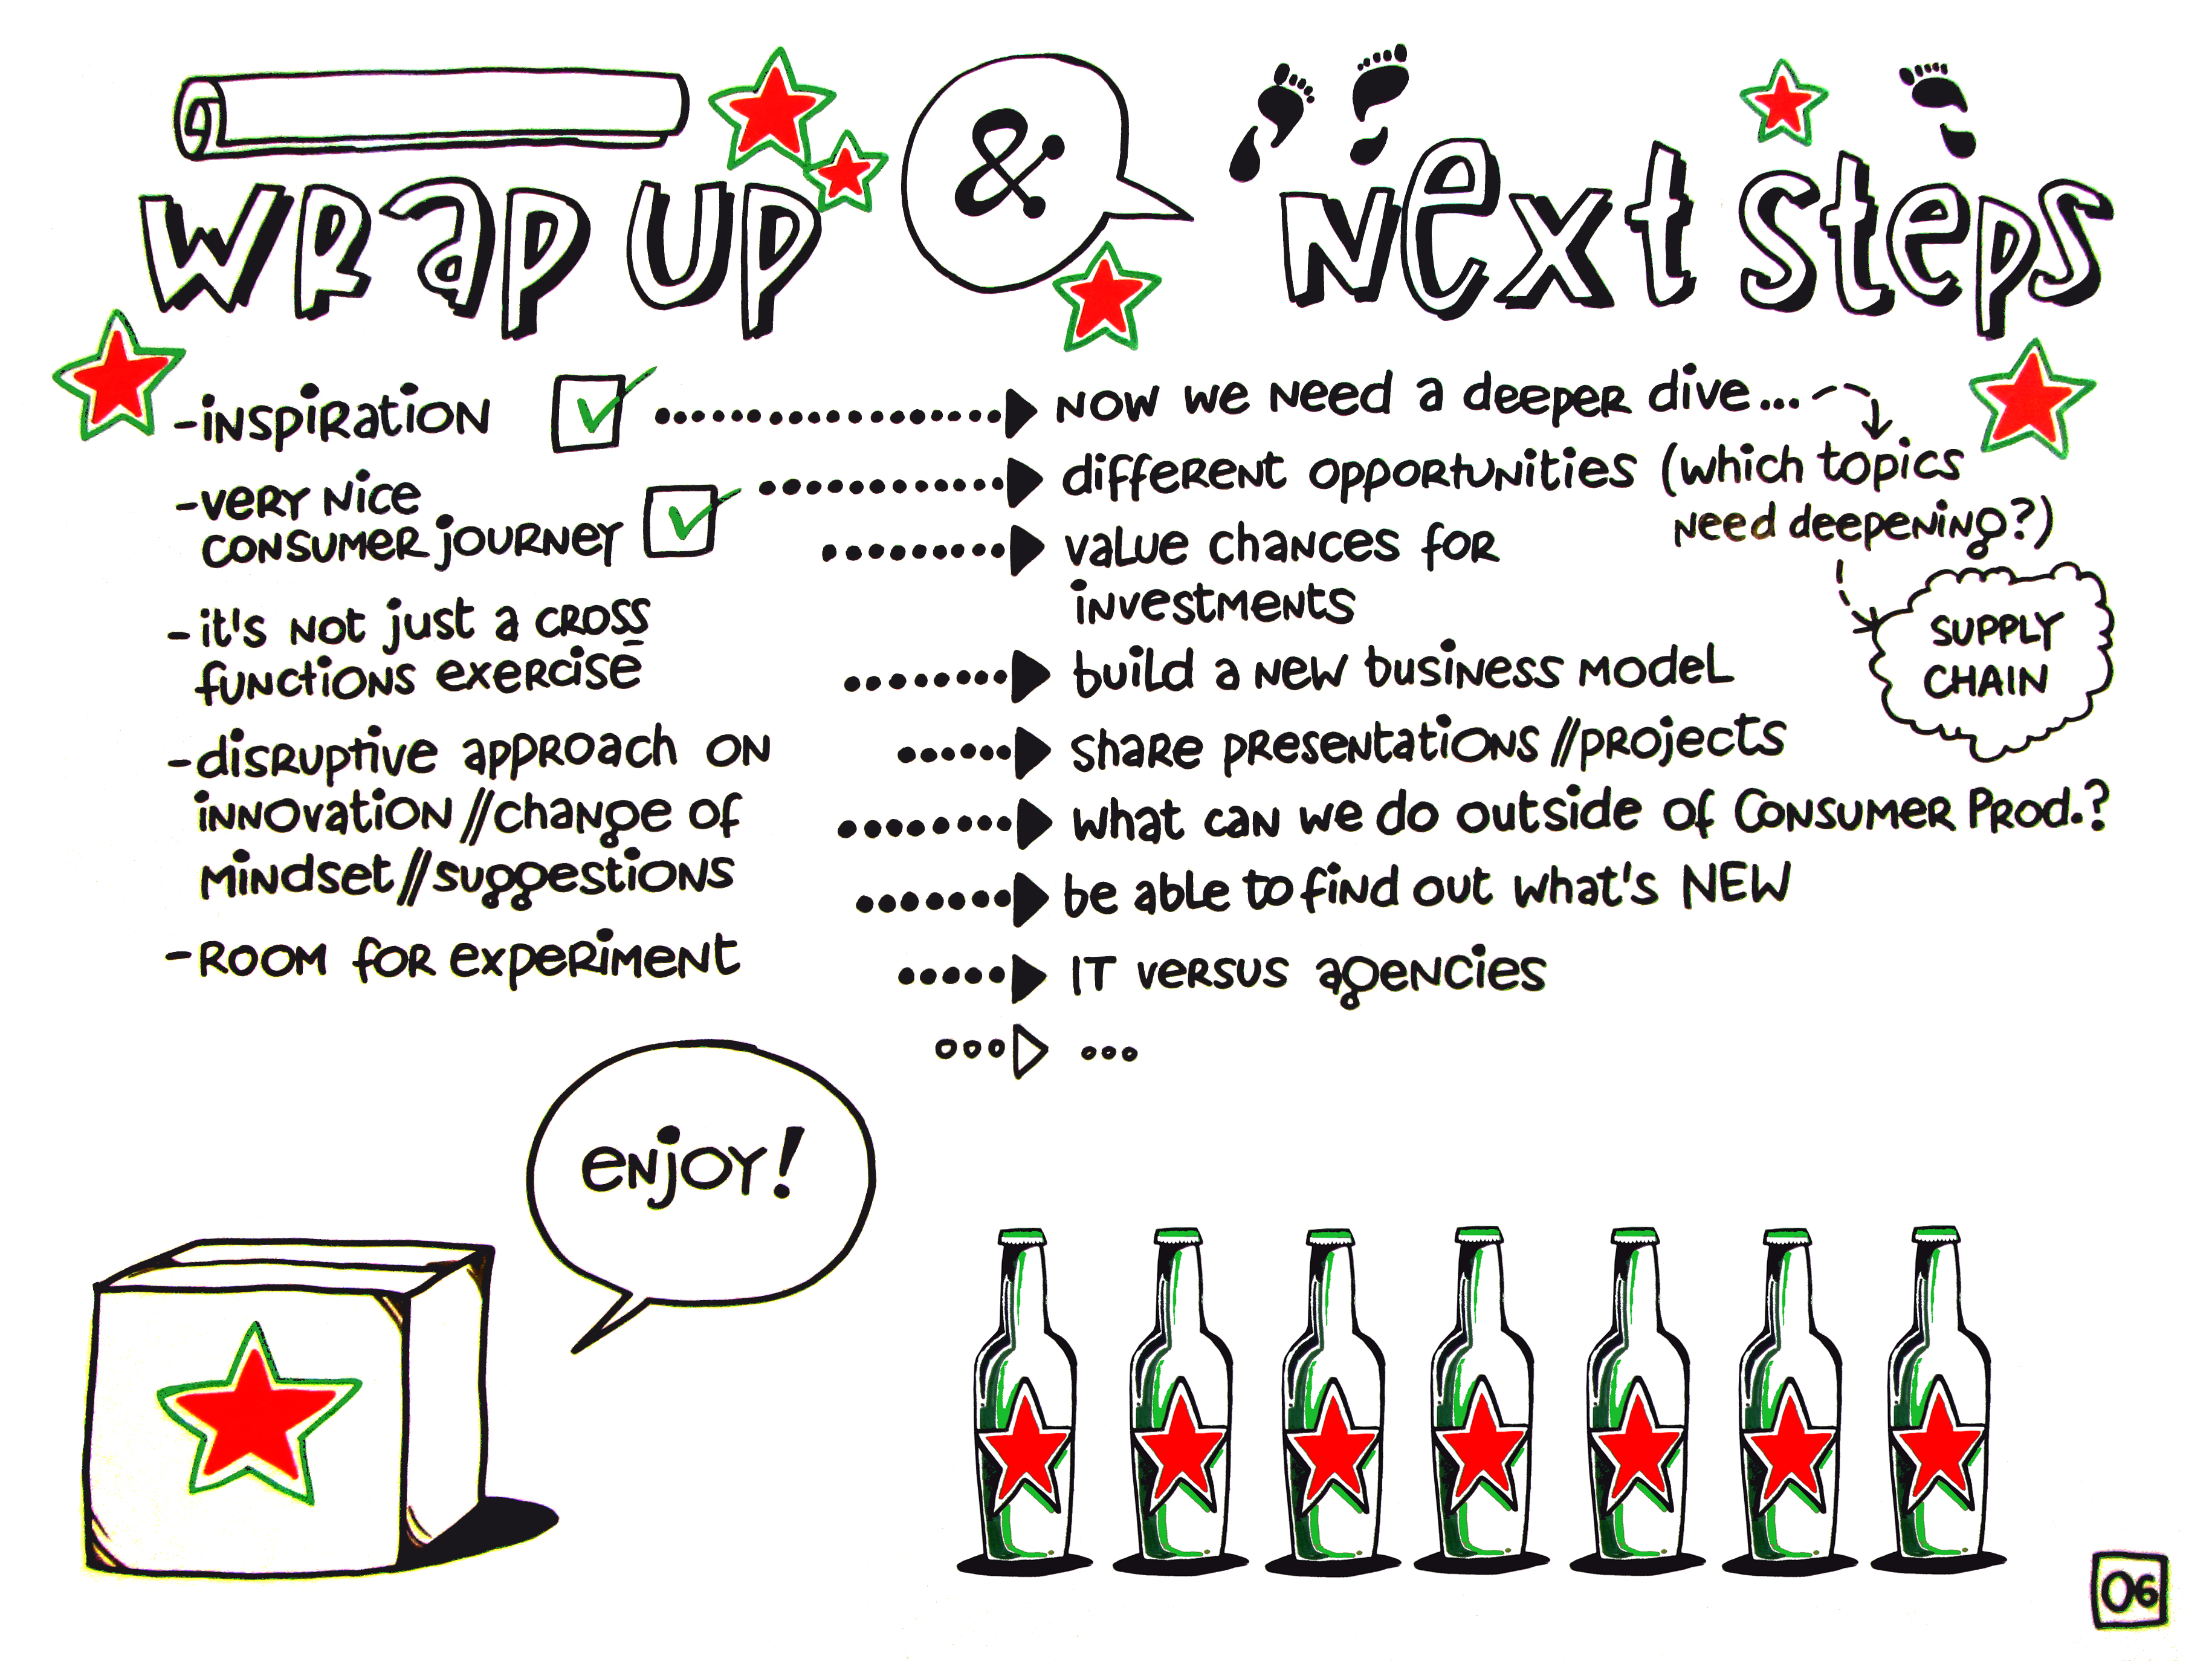 WRAP UP & Next Steps
- INSPIRATION
- VERY NICE
CONSUMER JOURNEY
- it's NOT just a CROSS
fUNCtiONS exeRcise
- disRuptive appROach ON
iNNOvatiON//chaNge of
MiNdset//suggestiONS
- ROOM fOR expeRiMeNt
NOW we Need a deepeR dive...
diffeReNt OppORtuNities (which topics
Need deepeNiNg?)
vaLue chaNces foR
iNvestMeNts
SUPPLY
CHAIN
buiLd a NeW busiNess ModeL
shaRe pReseNtatiONs//pROjects
what caN we do outside of CONSUMER PROd.?
be able to fiNd out what's NEW
IT veRsus ageNcies
...
eNjOY!
06